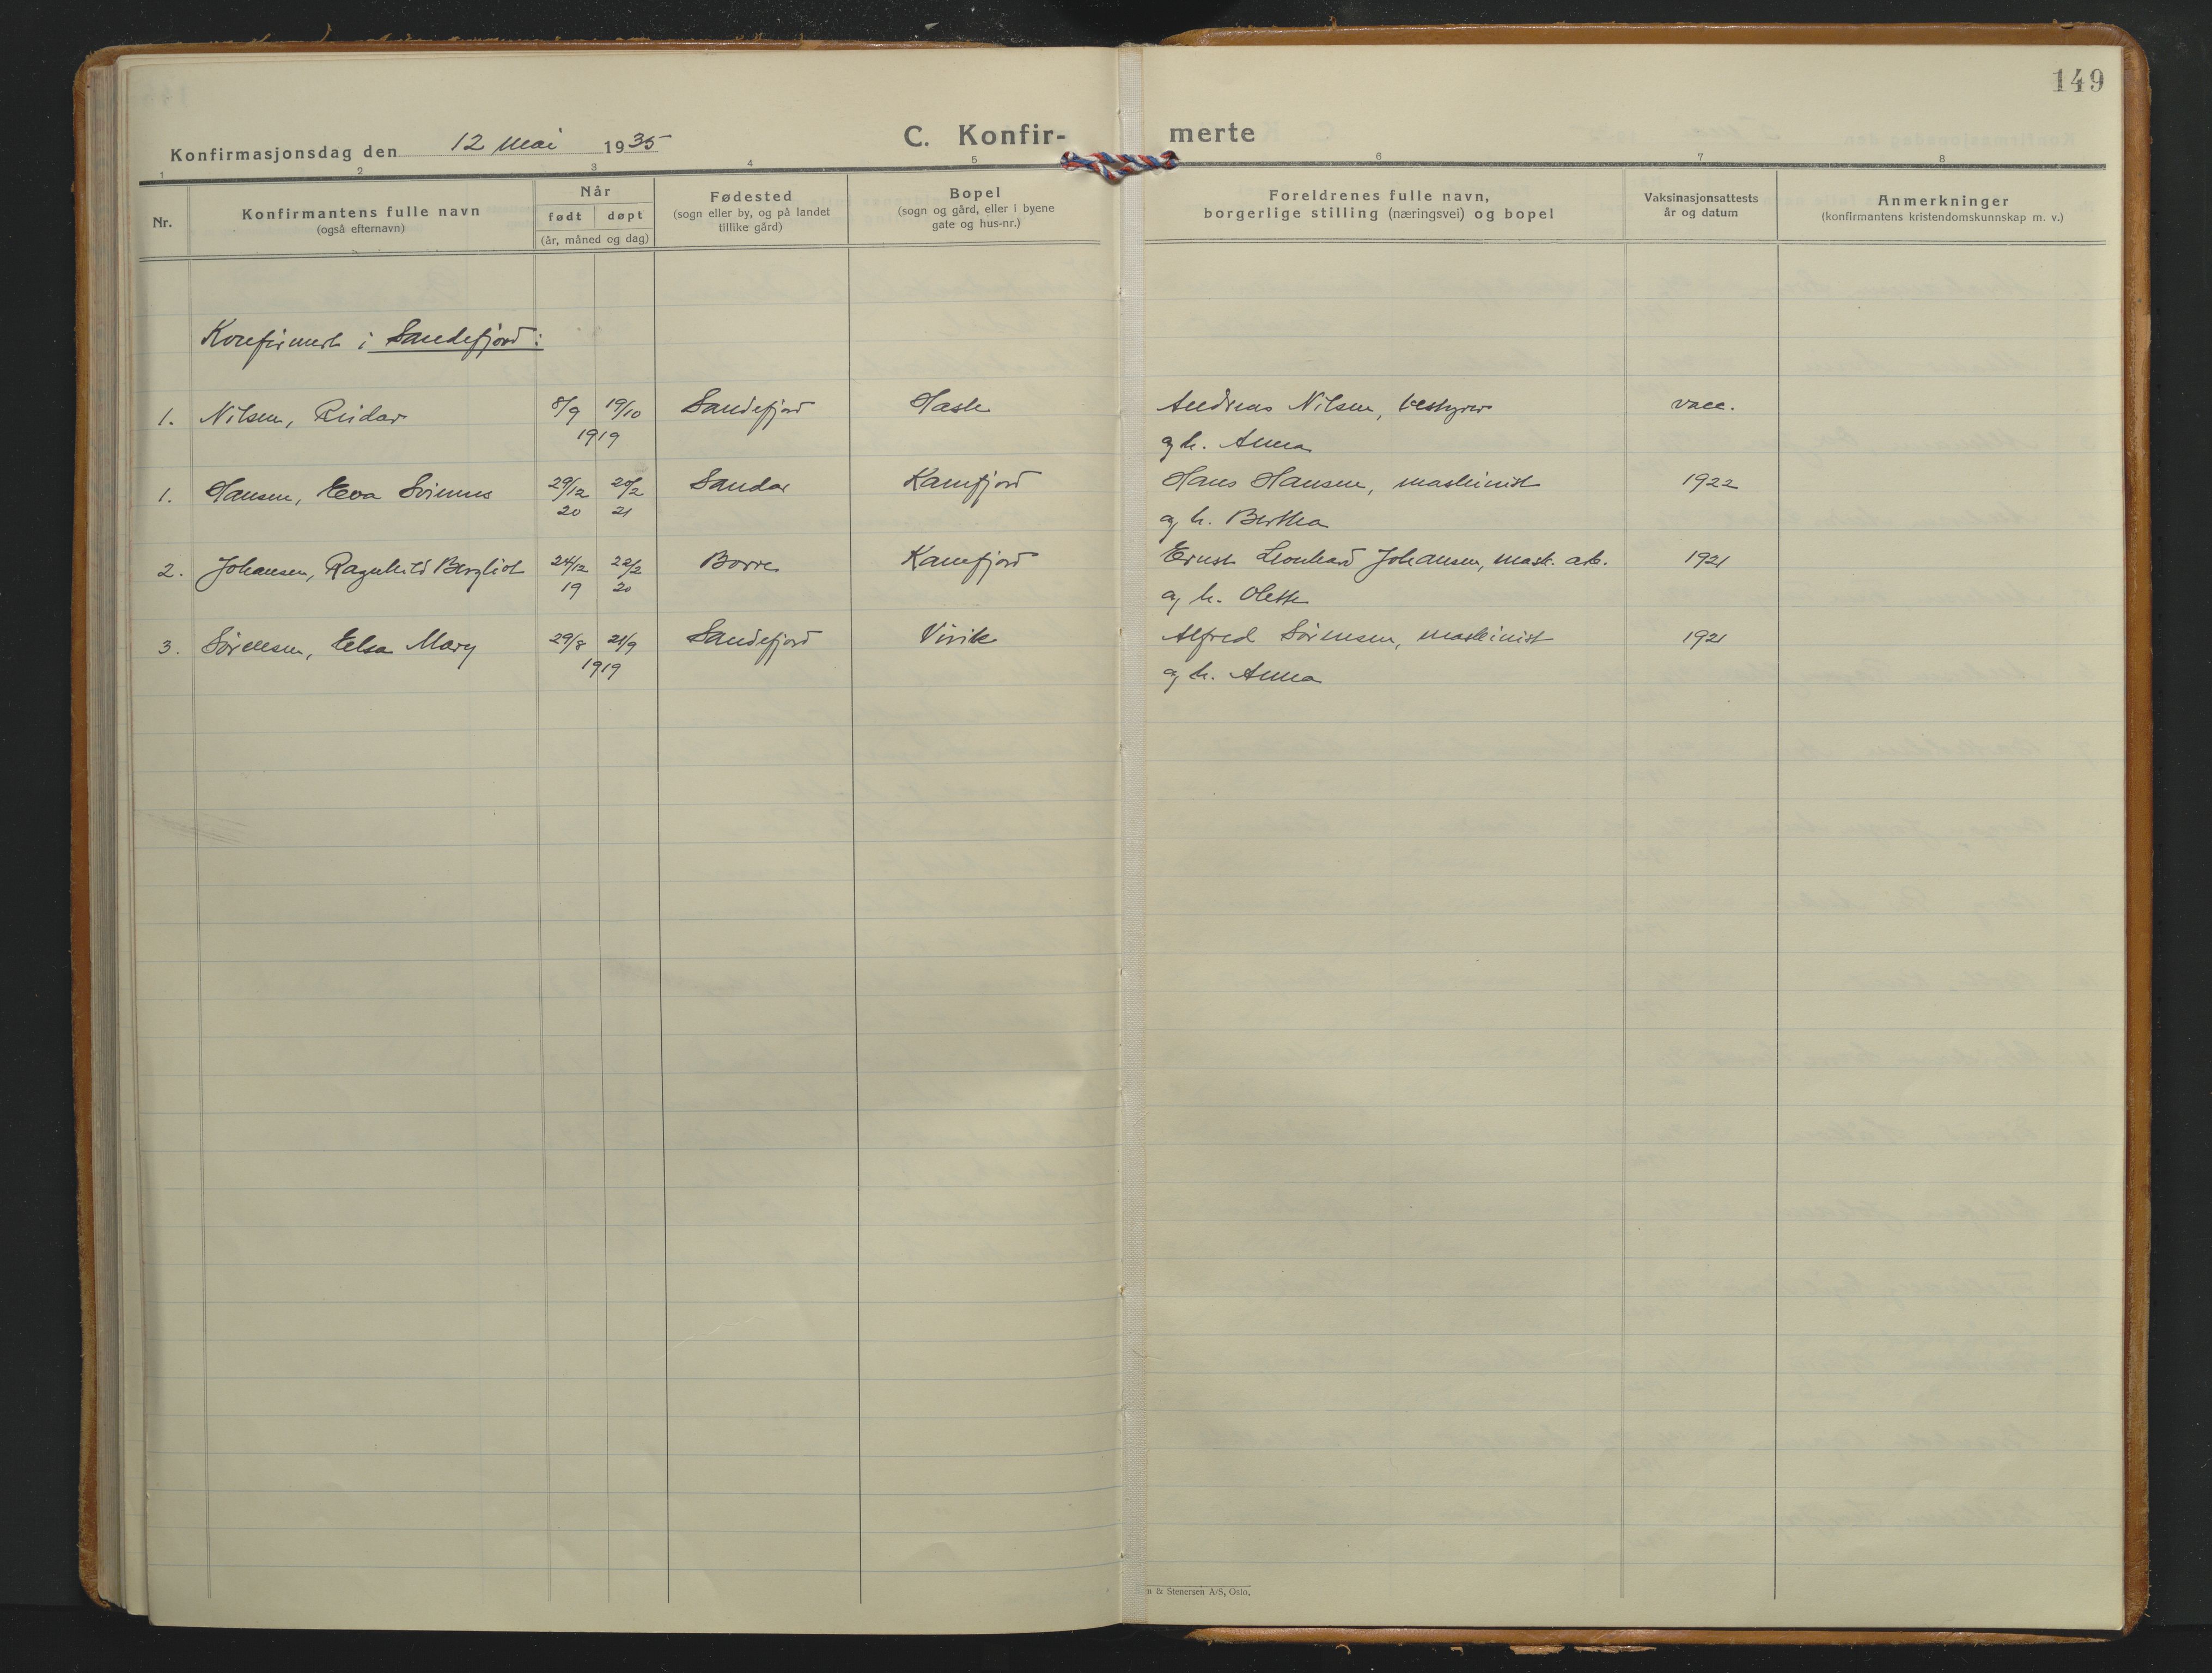 149
Konfirmasjonsdag den 12 Mai 1935
C. Konfir- merte
1 2 3 4 5 6 7 8
Nr.
Konfirmantens fulle navn
(også efternavn)
Når
født døpt
(år, måned og dag)
Fødested
(sogn eller by, og på landet
tillike gård)
Bopel
(sogn og gård, eller i byene
gate og hus-nr.)
Foreldrenes fulle navn,
borgerlige stilling (næringsvei) og bopel
Vaksinasjonsattests
år og datum
Anmerkninger
(konfirmantens kristendomskunnskap m. v.)
Konfirmert i Sandefjord:
1. Nilsen, Reidar 8/9 19/10 Sandefjord Hasle Andreas Nilsen, bestyrer vacc.
1919 og h. Anna
1. Hansen, Eva 29/12 20/2 Sandar Kamfjord Hans Hansen, maskinist 1922
20 21 og h. Bertha
2. Johansen, Ragnhild Bergliot 24/12 22/2 Borre Kamfjord Ernst Leonhard Johansen, mask. arb. 1921
19 20 og h. Olette
3. Sørensen, Elsa Mary 29/8 21/9 Sandefjord Virik Alfred Sørensen, maskinist 1921
1919 og h. Anna
n & Stenersen A/S, Oslo.